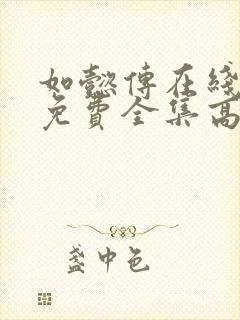 如懿傳在綫
免費全集高
盞中色